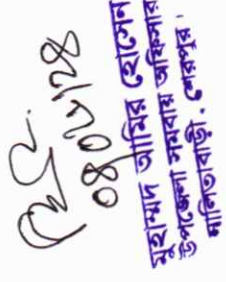 ০৪/০২/২৪
মুহাম্মদ আমির হোসেন
উপজেলা সমবায় অফিসার
নালিতাবাড়ী, শেরপুর।